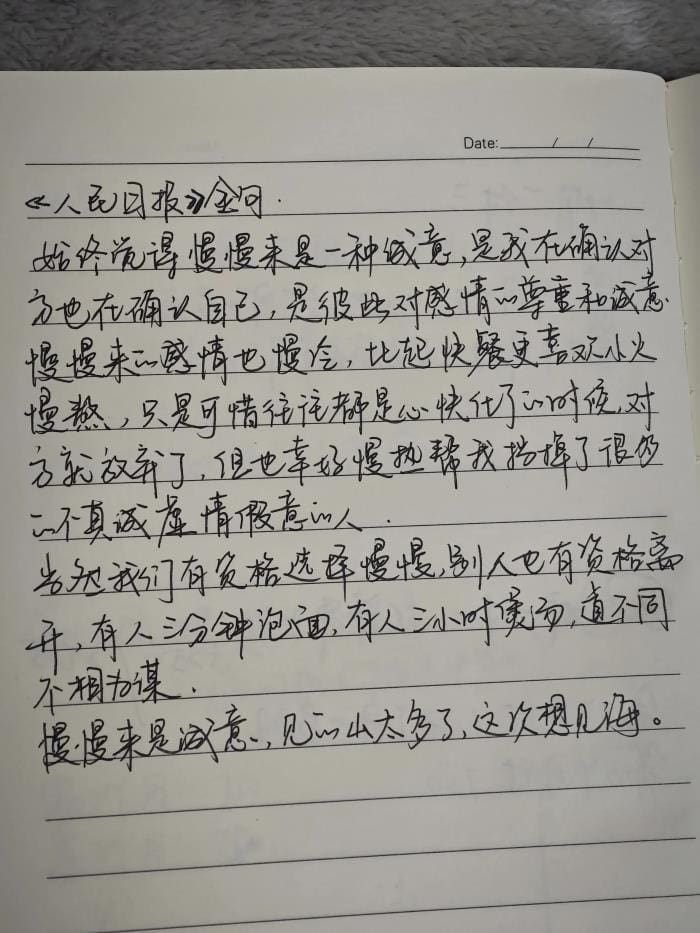 Date: / /
《人民日报》金句.
始终觉得慢慢来是一种诚意,是我在确认对
方也在确认自己,是彼此对感情的尊重和诚意.
慢慢来的感情也慢冷,比起快餐更喜欢小火
慢熬,只是可惜往往都是心快化了的时候,对
方就放弃了,但也幸好慢热帮我挡掉了很多
的不真诚虚情假意的人.
当然我们有资格选择慢慢,别人也有资格离
开,有人三分钟泡面,有人三小时煲汤,道不同
不相为谋.
慢慢来是诚意,见的山太多了,这次想见海。